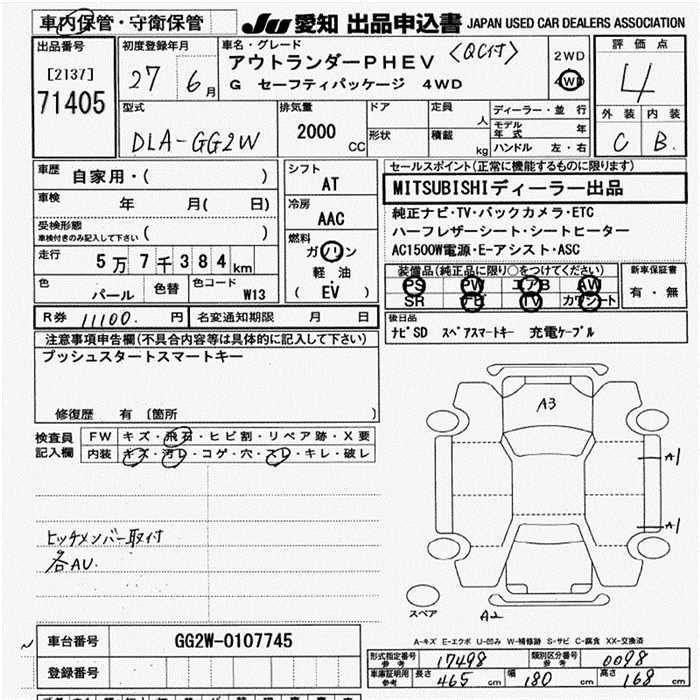 車内保管・守衛保管
JU 愛知 出品申込書 JAPAN USED CAR DEALERS ASSOCIATION
出品番号
[2137]
71405
初度登録年月
27 6月
車名・グレード
アウトランダーPHEV 〈QC付〉
G セーフティパッケージ 4WD
2WD
4WD
評価点
4
外装 内装
C B.
型式
DLA-GG2W
排気量
2000
CC
ドア
形状
定員
人
積載
kg
ディーラー・並行
モデル年式 年
ハンドル 左・右
車歴
自家用・( )
車検 年 月( 日)
受検形態
車検付きのみ記入して下さい ( )
走行 5万7千384km
色 パール
色替
色コード W13
シフト
AT
冷房
AAC
燃料
ガソリン
軽油
( EV )
セールスポイント(正常に機能するものに限ります)
MITSUBISHIディーラー出品
純正ナビ・TV・バックカメラ・ETC
ハーフレザーシート・シートヒーター
AC1500W電源・E-アシスト・ASC
装備品(純正品に限り○をつけてください)
PS PW エアB AW
SR ナビ TV カワシート
新車保証書
有・無
R券 11100. 円 名変通知期限 月 日
後日品
ナビSD スペアスマートキー 充電ケーブル
注意事項申告欄(不具合内容等は具体的に記入して下さい)
プッシュスタートスマートキー
修復歴 有 〔箇所 〕
検査員記入欄
FW キズ・飛石・ヒビ割・リペア跡・X要
内装 キズ・汚レ・コゲ・穴・スレ・キレ・破レ
ヒッチメンバー取付
各AU.
A3
A1
A1
スペア
A2
車台番号 GG2W-0107745
登録番号
A-キズ E-エクボ U-凹み W-補修跡 S-サビ C-腐食 XX-交換済
形式指定番号 参考 17498 類別区分番号 参考 0098
車庫証明用 参考 長さ 465 cm 幅 180 cm 高さ 168 cm